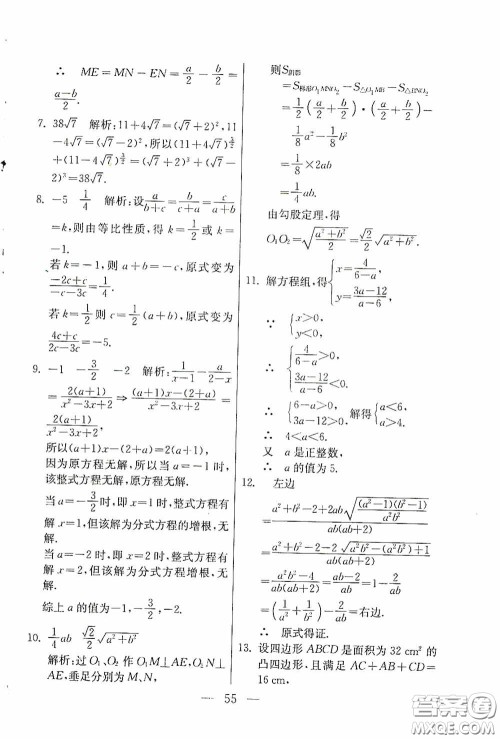 ∴ ME=MN－EN=a/2－b/2=
(a－b)/2.
7. 38√7 解析:11+4√7=(√7+2)²,11
－4√7=(√7－2)²,所以(11+4√7)^(3/2)
+(11－4√7)^(3/2)=(√7+2)³+(√7－
2)³=38√7.
8. －5 1/4 解析:设a/(b+c)=b/(c+a)=c/(a+b)
=k,则由等比性质,得 k=1/2或 k=
－1.
若 k=－1,则 a+b=－c,原式变为
(－2c+c)/(－c－3c)=1/4.
若 k=1/2则 c=1/2(a+b),原式变为
(4c+c)/(2c－3c)=－5.
9. －1 －3/2 －2 解析:1/(x－1)－a/(2－x)
=2(a+1)/(x²－3x+2)⇒((a+1)x－(2+a))/(x²－3x+2)=
2(a+1)/(x²－3x+2),
所以(a+1)x－(2+a)=2(a+1),
因为原方程无解,所以当 a=－1 时,
该整式方程无解,原方程无解.
当a=－3/2时,即 x=1 时,整式方程有
解 x=1,但该解为分式方程的增根,无
解.
当 a=－2 时,即 x=2 时,整式方程有
解 x=2,但该解为分式方程增根,无
解.
综上 a 的值为－1,－3/2,－2.
10. 1/4ab √2/2√(a²+b²)
解析:过O₁、O₂ 作O₁M⊥AE,O₂N⊥
AE,垂足分别为 M、N,
则S
=1/2(a/2+b/2)·(a/2+b/2)－
1/8a²－1/8b²
=1/8×2ab
=1/4ab.
由勾股定理,得
O₁O₂=√((a²+b²)/2)=√2/2√(a²+b²).
11. 解方程组,得{x=4/(6－a),
y=(3a－12)/(a－6).
∵ {x>0,
y<0.
∴ {4/(6－a)>0,
(3a－12)/(a－6)<0.
∴ {6－a>0,
3a－12>0. 解得{a<6,
a>4.
∴ 4<a<6.
又 a 是正整数,
∴ a 的值为 5.
12. 左边
=(a²+b²－2+2ab√((a²－1)(b²－1)/(a²b²)))/(ab(ab+2))
=(a²+b²－2－2√(a²b²－(a²+b²)+1))/(ab(ab+2))
=(a²b²－4)/(ab(ab+2))=(ab－2)/ab=1－2/ab
=(1/a²+1/b²)+2/ab=右边.
∴ 原式得证.
13. 设四边形 ABCD 是面积为 32 cm² 的
凸四边形,且满足 AC+AB+CD=
16 cm,
— 55 —
答案圈
MXQE.COM